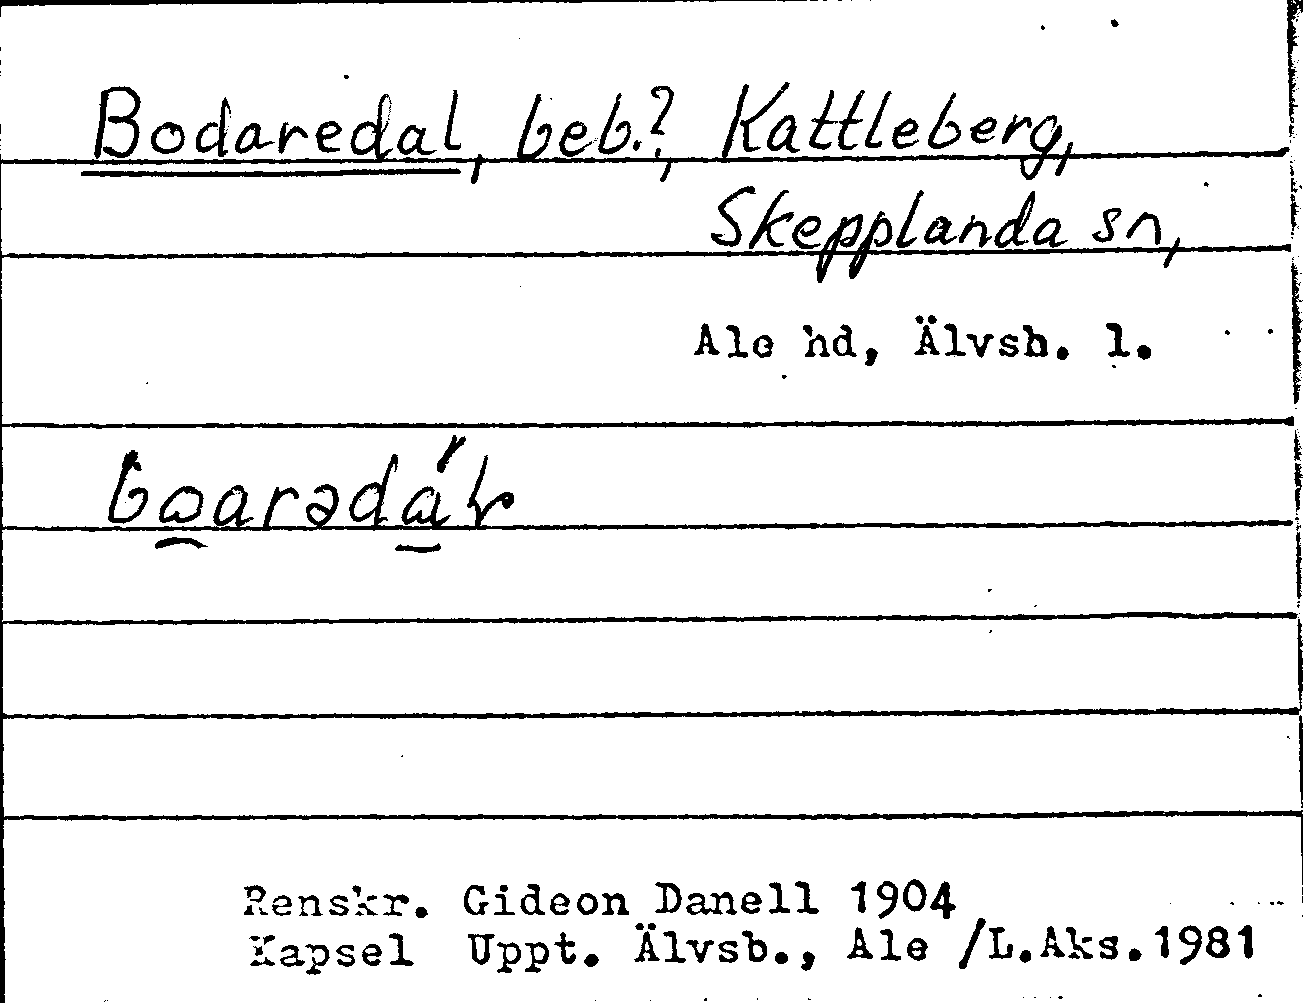 Bodaredal, beb.?, Kattleberg,
Skepplanda sn,
Ale hd, Älvsb. l.
Renskr. Gideon Danell 1904
Kapsel Uppt. Älvsb., Ale /L.Aks.1981